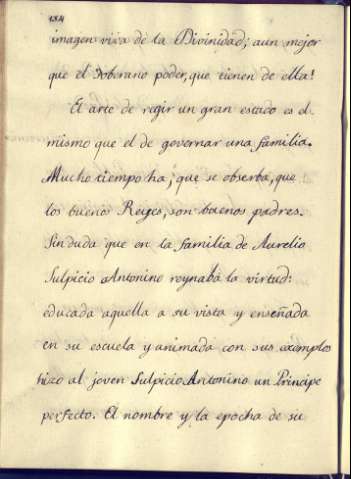 184
imagen viva de la Divinidad; aun mejor
que el soberano poder, que tienen de ella!
El arte de regir un gran estado es el
mismo que el de governar una familia.
Mucho tiempo ha, que se observa, que
los buenos Reyes, son buenos padres.
Sin duda que en la familia de Aurelio
Sulpicio Antonino reynabá la virtud:
educada aquella a su vista y enseñada
en su escuela y animada con sus exemplos
hizo al joven Sulpicio Antonino un Principe
perfecto. El nombre y la epocha de su